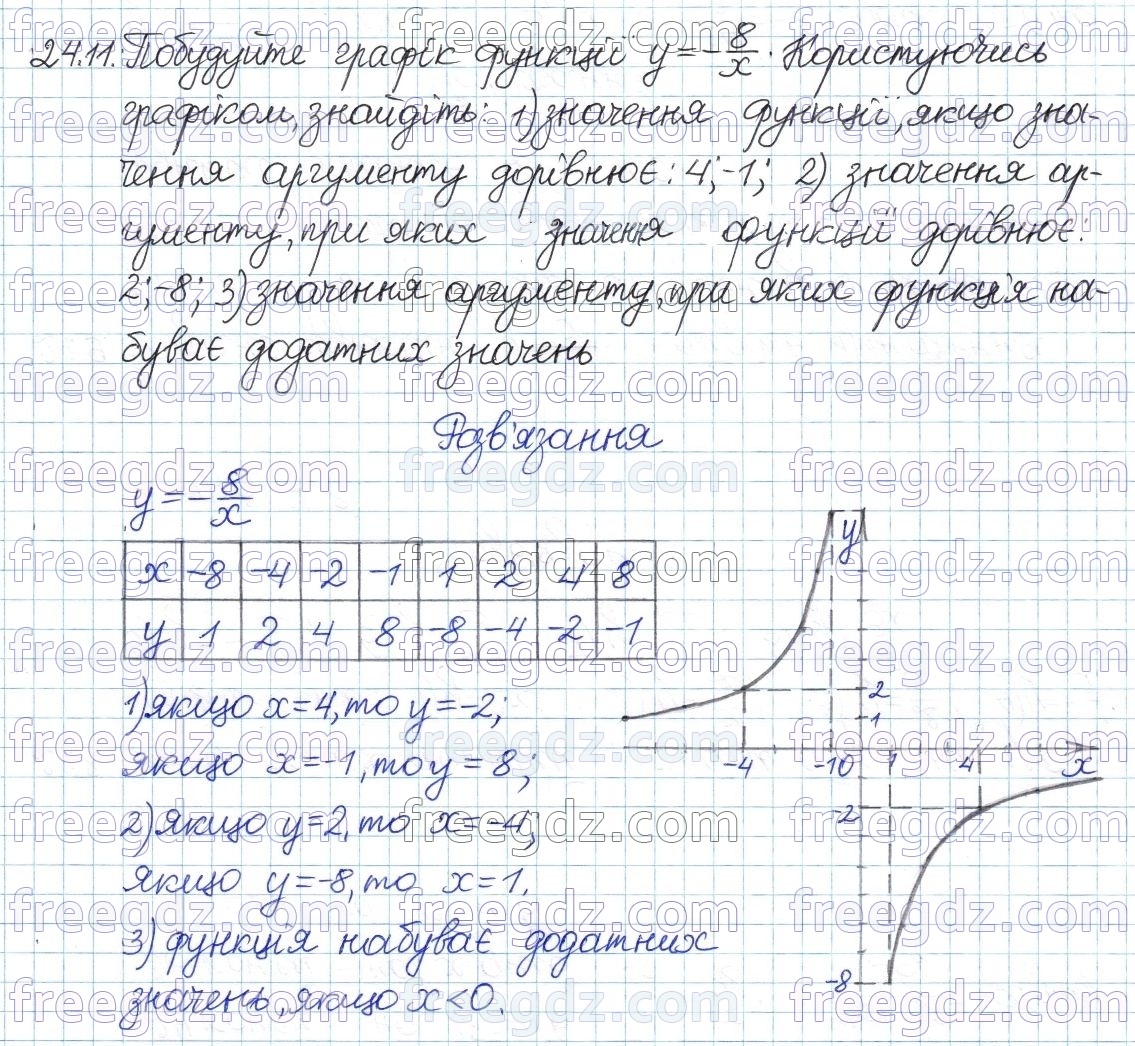 24.11. Побудуйте графік функції y = - 8/x. Користуючись
графіком, знайдіть: 1) значення функції, якщо зна-
чення аргументу дорівнює: 4; -1; 2) значення ар-
гументу, при яких значення функції дорівнює:
2; -8; 3) значення аргументу, при яких функція на-
буває додатних значень
Розв'язання
y = - 8/x
x -8 -4 -2 -1 1 2 4 8
y 1 2 4 8 -8 -4 -2 -1
1) якщо x = 4, то y = -2;
якщо x = -1, то y = 8;
2) якщо y = 2, то x = -4;
якщо y = -8, то x = 1.
3) функція набуває додатних
значень, якщо x < 0.
y
2
1
-4 -1 0 1 4 x
-2
-8
freegdz.com